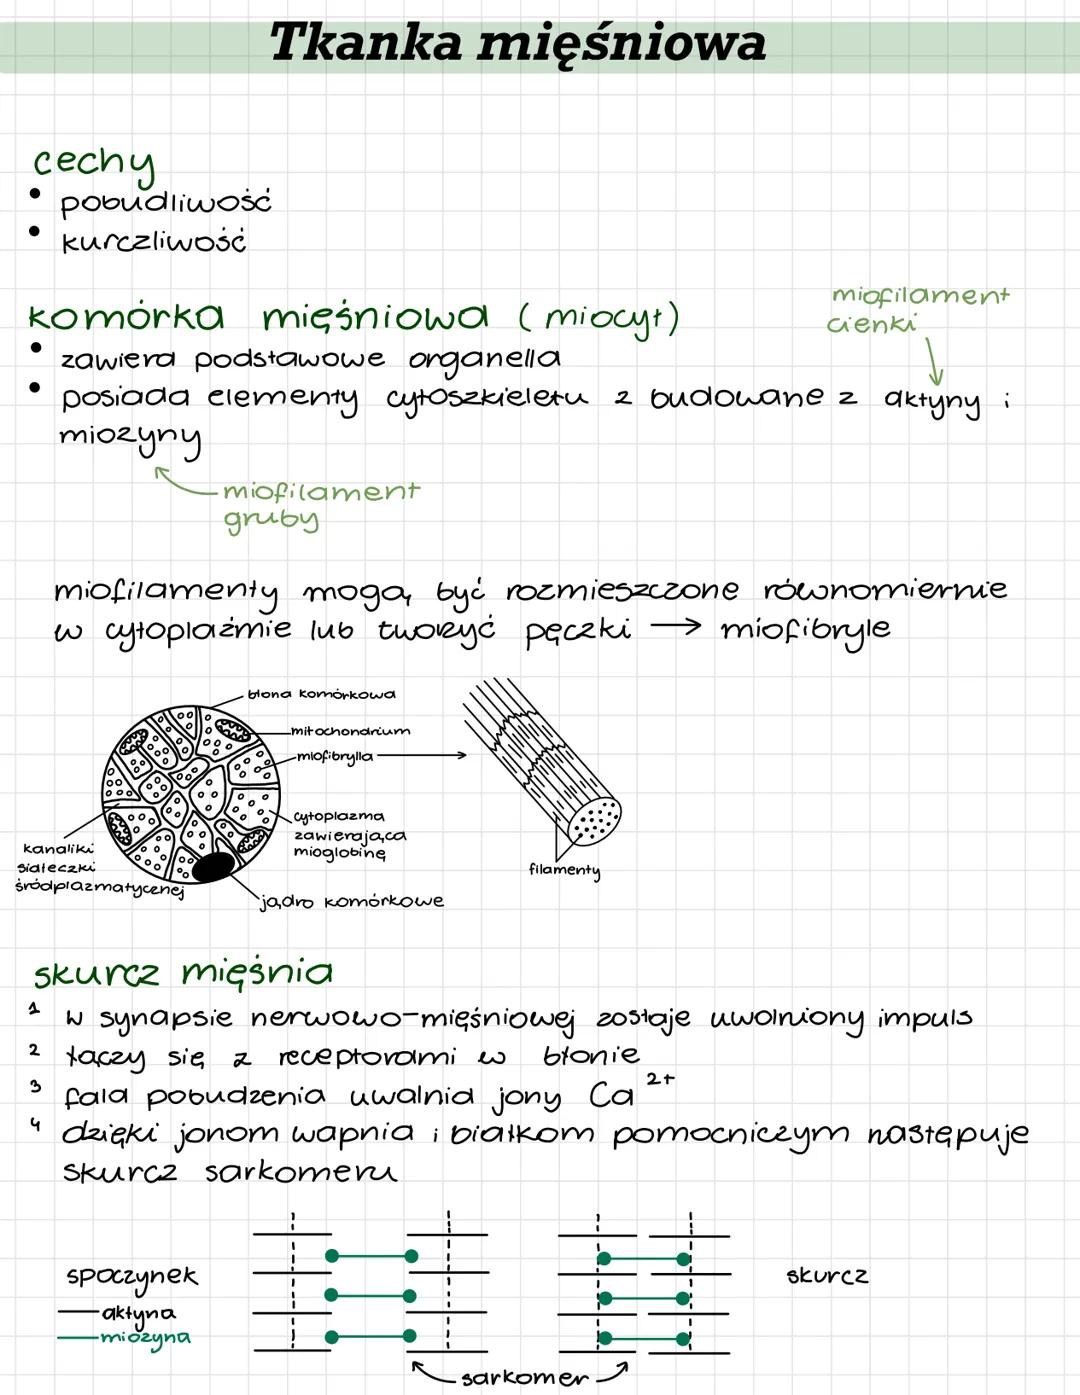 Tkanka mięśniowa
cechy
• pobudliwość
• kurczliwość
komórka mięśniowa (miocyt)
miofilament
cienki
• zawiera podstawowe organella
• posiada elementy cytoszkieletu z budowane z aktyny i
miozyny
miofilament
gruby
miofilamenty mogą być rozmieszczone równomiernie
w cytoplaźmie lub tworzyć pęczki → miofibryle
błona komórkowa
mitochondrium
miofibrylla
cytoplazma
zawierająca
mioglobinę
kanaliki
siateczki
śródplazmatycznej
jądro komórkowe
filamenty
skurcz mięśnia
1 w synapsie nerwowo-mięśniowej zostaje uwolniony impuls
2 łączy się z receptorami w błonie
3 fala pobudzenia uwalnia jony Ca 2+
4 dzięki jonom wapnia i białkom pomocniczym następuje
skurcz sarkomeru
spoczynek
aktyna
miozyna
skurcz
sarkomer